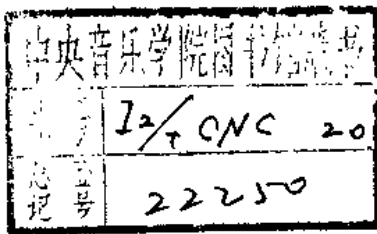 中央音乐学院图书馆藏书
书号 I2/T CNC 20
总登记号 22250